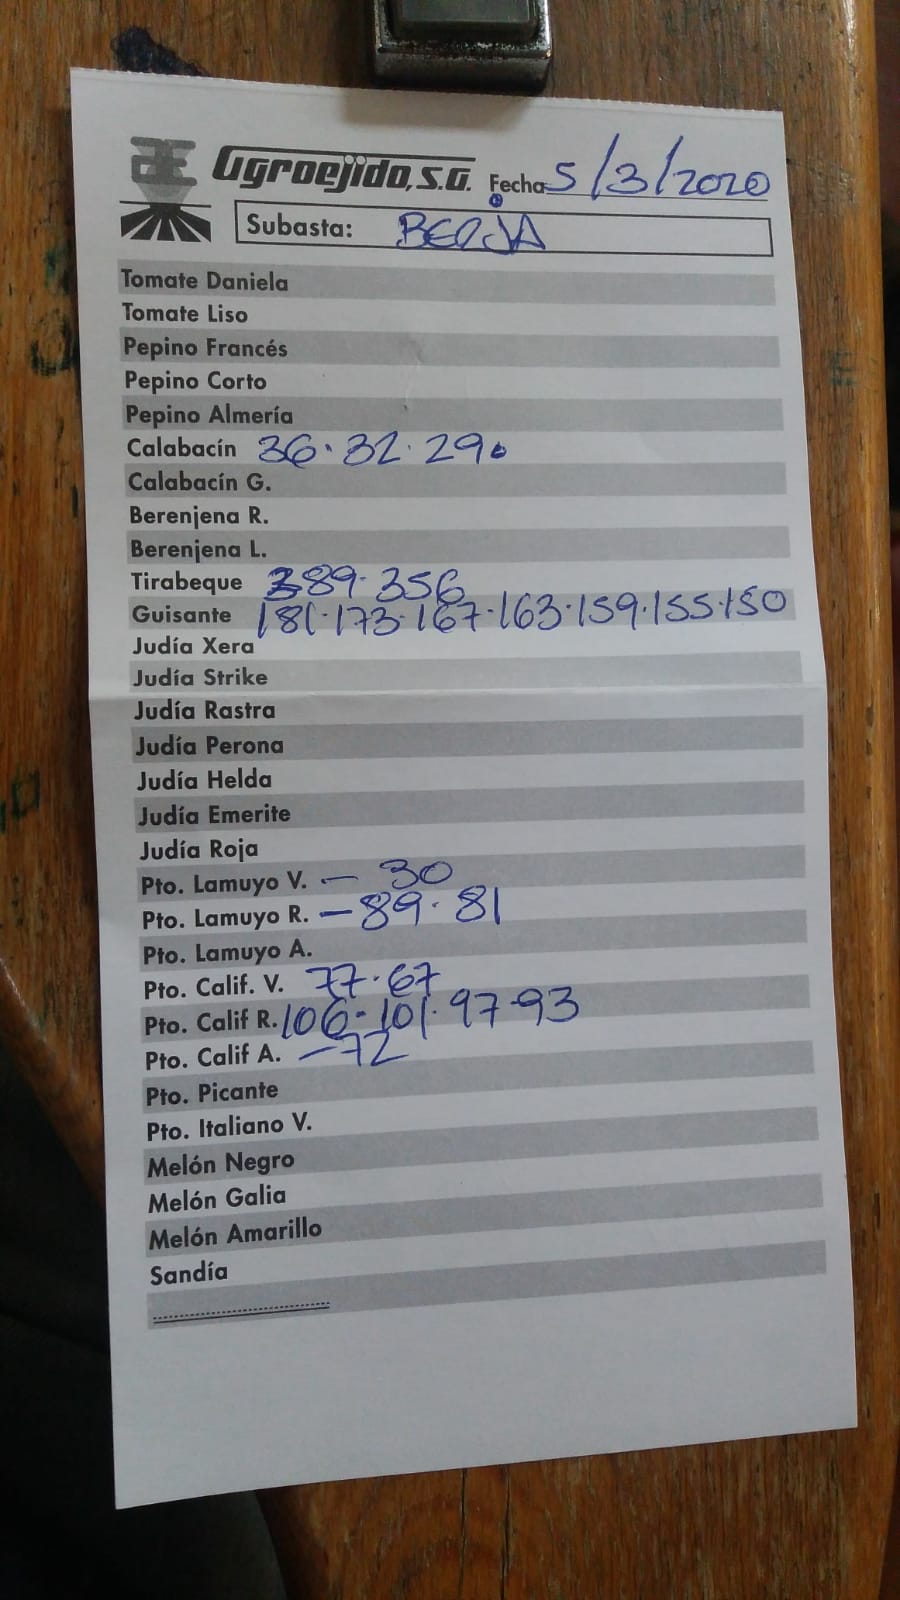 Agroejido, S.A. Fecha 5/3/2020
Subasta: BERJA
Tomate Daniela
Tomate Liso
Pepino Francés
Pepino Corto
Pepino Almería
Calabacín 36·32·29·
Calabacín G.
Berenjena R.
Berenjena L.
Tirabeque 389·356
Guisante 181·173·167·163·159·155·150
Judía Xera
Judía Strike
Judía Rastra
Judía Perona
Judía Helda
Judía Emerite
Judía Roja
Pto. Lamuyo V. — 30
Pto. Lamuyo R. — 89·81
Pto. Lamuyo A.
Pto. Calif. V. 77·67
Pto. Calif R. 106·101·97·93
Pto. Calif A. — 72
Pto. Picante
Pto. Italiano V.
Melón Negro
Melón Galia
Melón Amarillo
Sandía